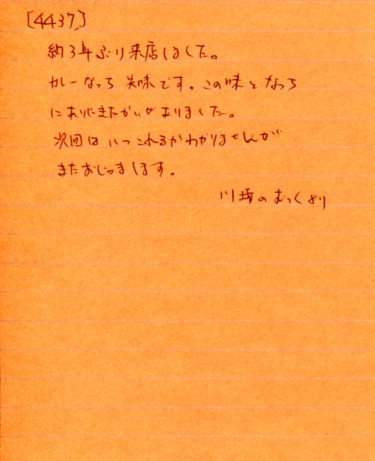 [4437]
約3年ぶり来店しました。
カレーなっち 美味です。この味となっち
にあいにきたかいがありました。
次回はいつこれるかわかりませんが
またおじゃまします。
川崎のむっくより